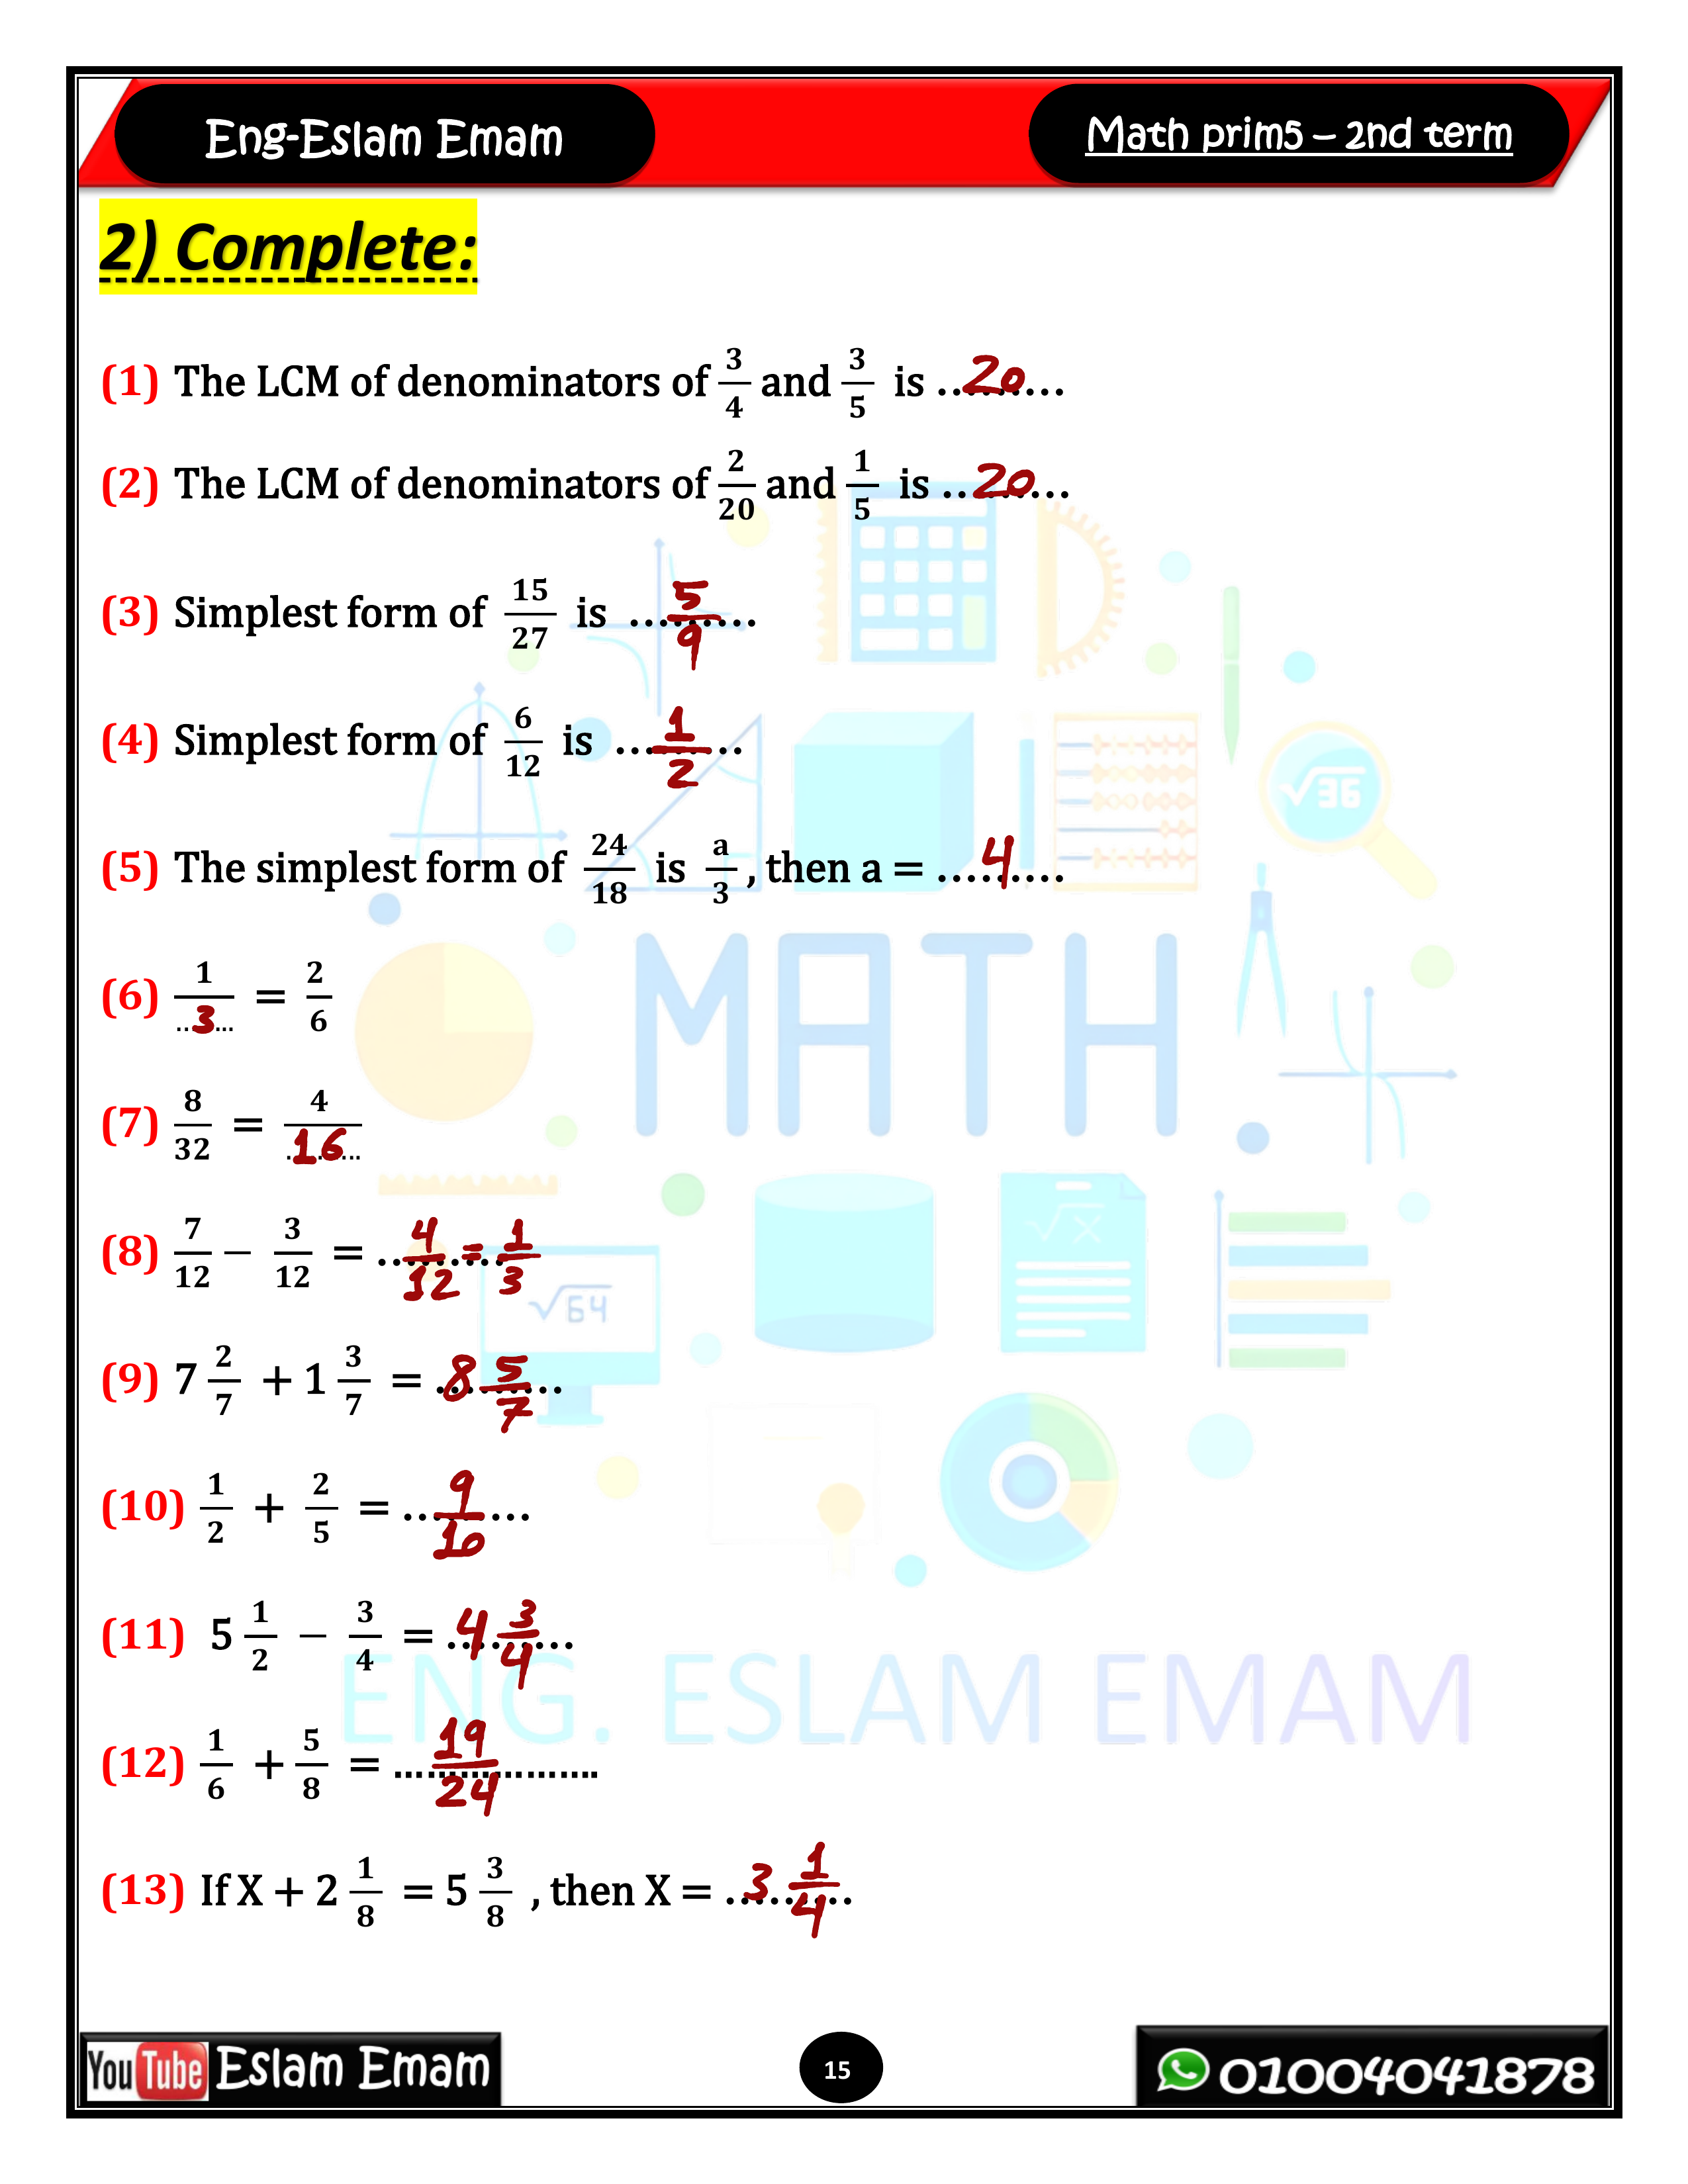 Eng-Eslam Emam
Math prim5 – 2nd term
2) Complete:
(1) The LCM of denominators of 3/4 and 3/5 is ......... 20
(2) The LCM of denominators of 2/20 and 1/5 is ......... 20
(3) Simplest form of 15/27 is ......... 5/9
(4) Simplest form of 6/12 is ......... 1/2
(5) The simplest form of 24/18 is a/3 , then a = ......... 4
(6) 1/3 = 2/6
(7) 8/32 = 4/16
(8) 7/12 − 3/12 = ......... 4/12 = 1/3
(9) 7 2/7 + 1 3/7 = ......... 8 5/7
(10) 1/2 + 2/5 = ......... 9/10
(11) 5 1/2 − 3/4 = ......... 4 3/4
(12) 1/6 + 5/8 = ................... 19/24
(13) If X + 2 1/8 = 5 3/8 , then X = ......... 3 1/4
√36
MATH
√x
√64
ENG. ESLAM EMAM
YouTube Eslam Emam
15
01004041878